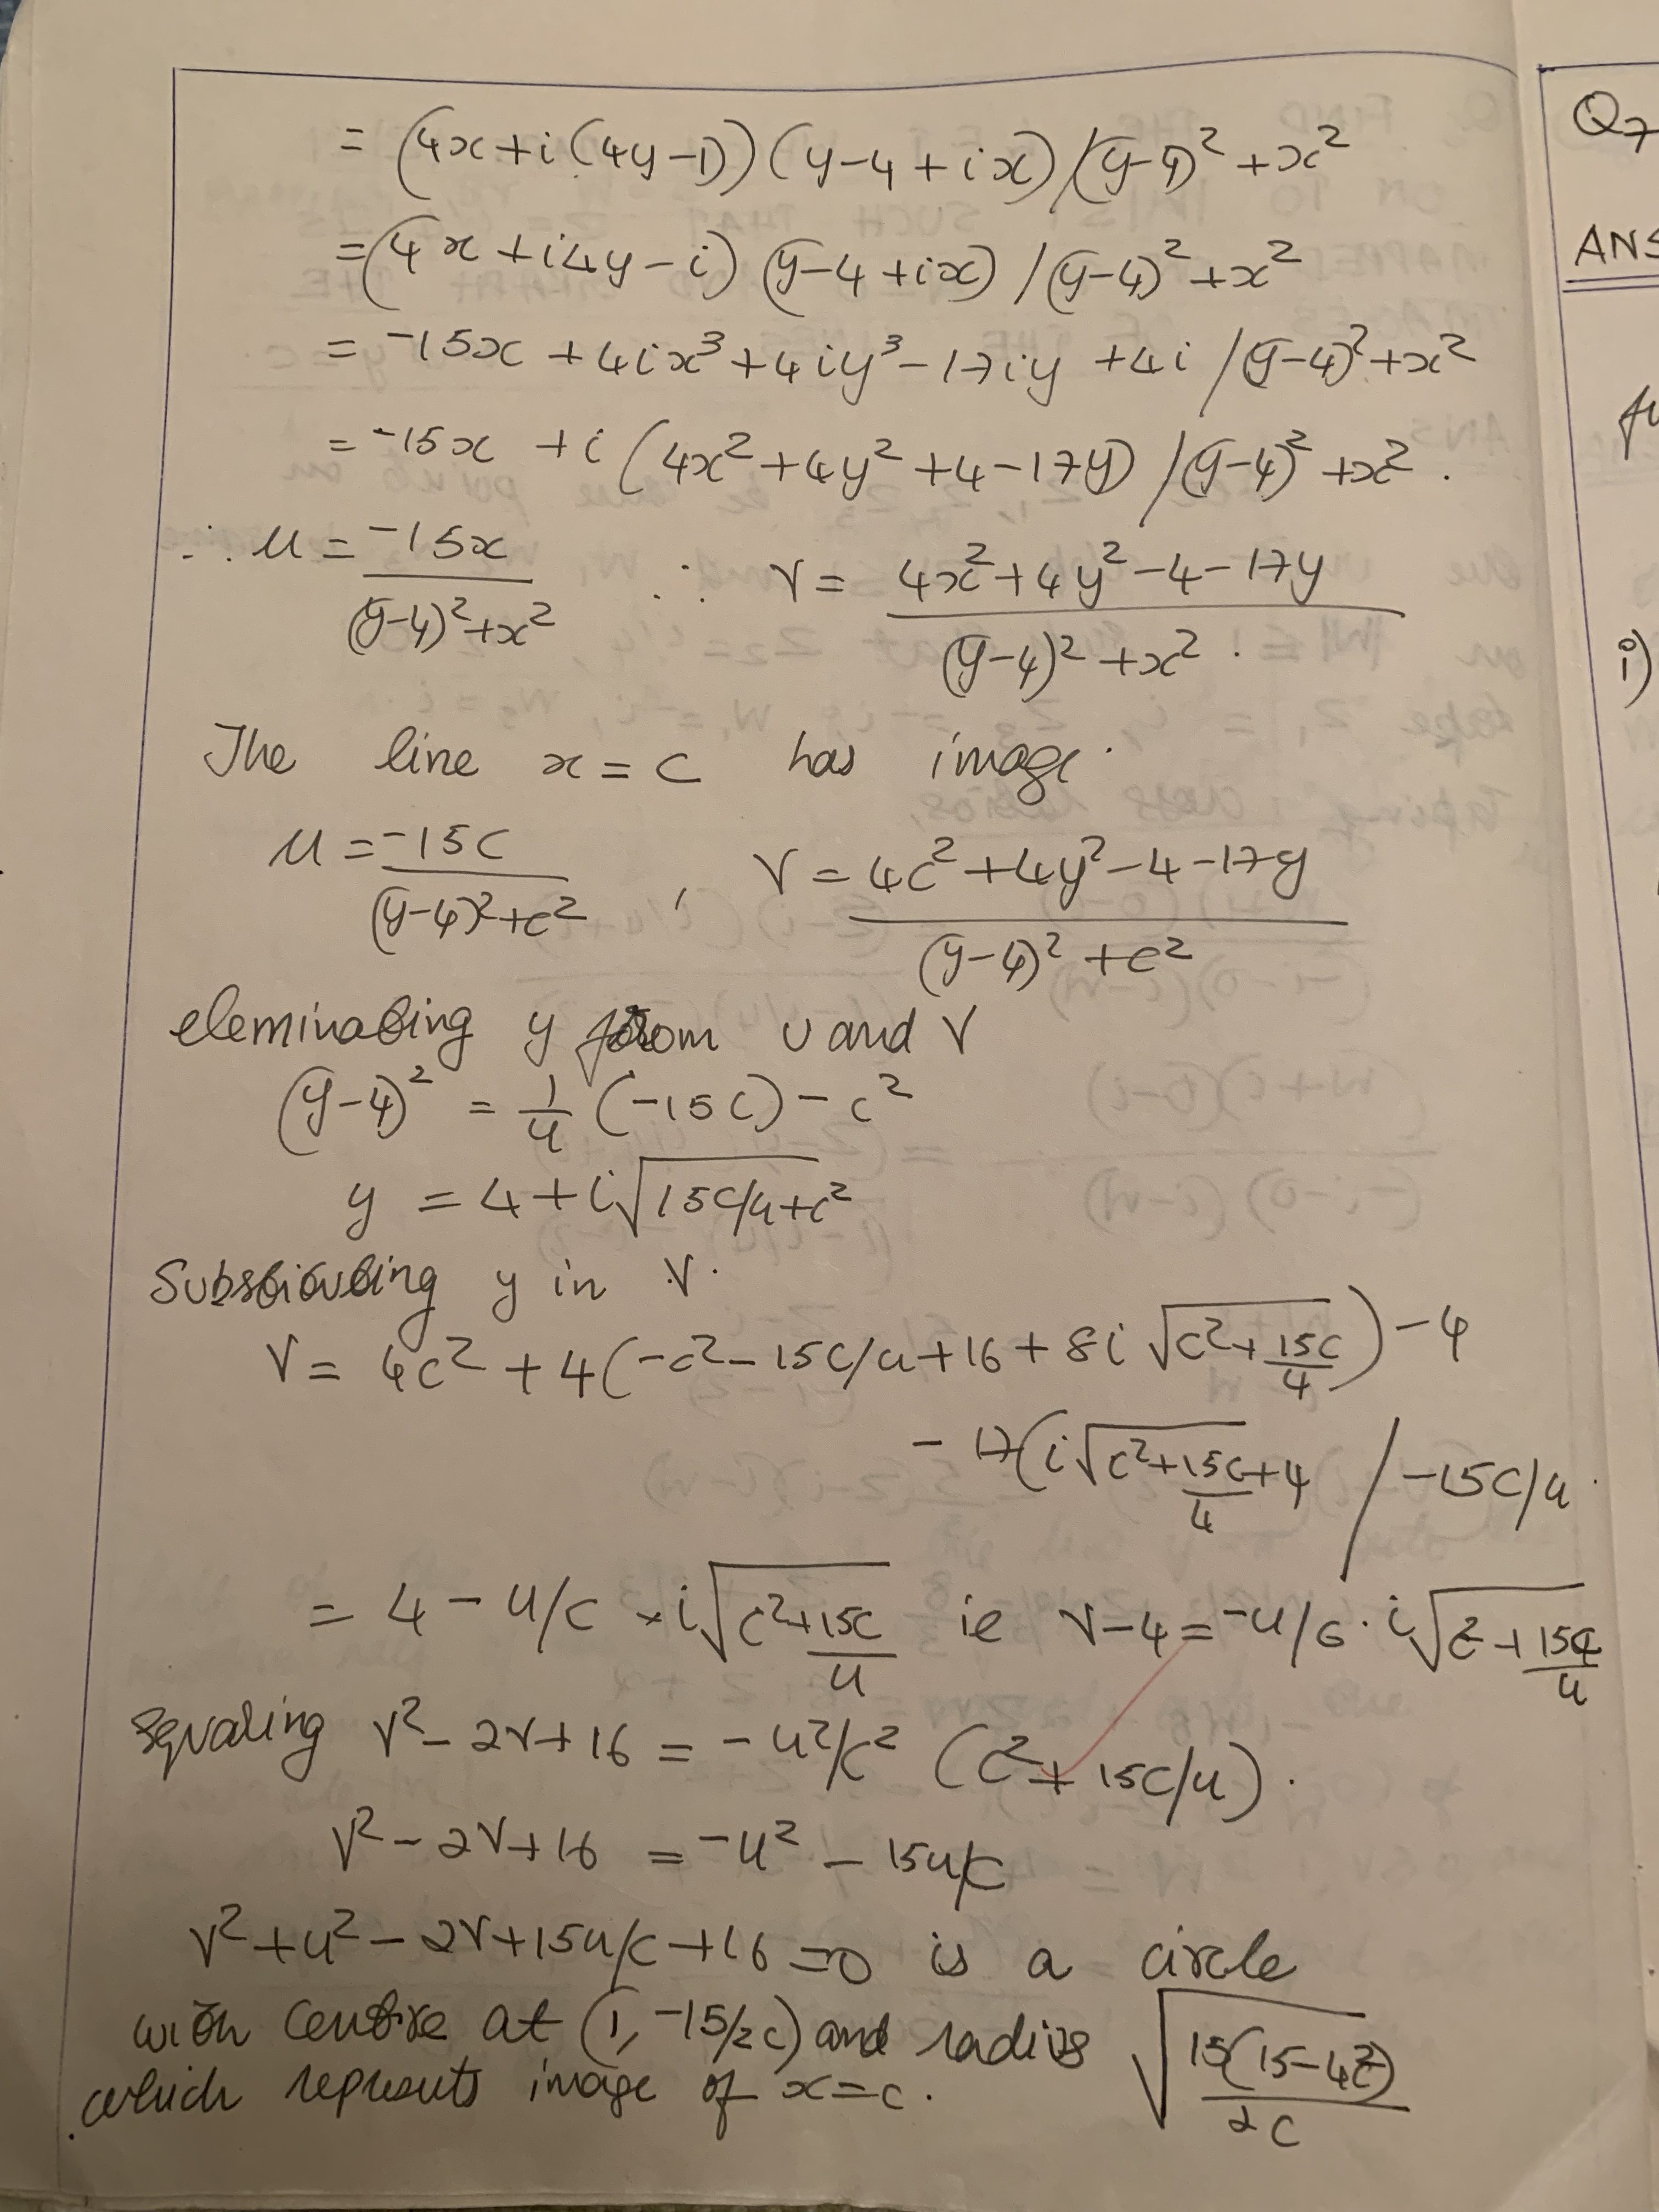 = (4x+i(4y-1))(y-4+ix)/(y-4)²+x²
= (4x+i4y-i)(y-4+ix)/(y-4)²+x²
= -15x +4ix³+4iy³-17iy +4i/(y-4)²+x²
= -15x +i(4x²+4y²+4-17y)/(y-4)²+x².
∴ u = -15x/(y-4)²+x² ∴ v = 4x²+4y²-4-17y/(y-4)²+x².
The line x=c has image.
u = -15c/(y-4)²+c² , v = 4c²+4y²-4-17y/(y-4)²+c²
eleminating y from u and v
(y-4)² = 1/u (-15c)-c²
y = 4+i√15c/u+c²
Substituting y in v.
v = 4c²+4(-c²-15c/u+16+8i√c²+15c/4)-4
-17(i√c²+15c/4+4 / -15c/u.
= 4-u/c ×i√c²+15c/u ie v-4=-u/c.i√c²+15c/u
Squaring v²-2v+16 = -u²/c² (c²+15c/u).
v²-2v+16 = -u²-15u/c
v²+u²-2v+15u/c+16=0 is a circle
with centre at (1,-15/2c) and radius √15(15-4c²)/2c
which represents image of x=c.
Q7
ANS
i)